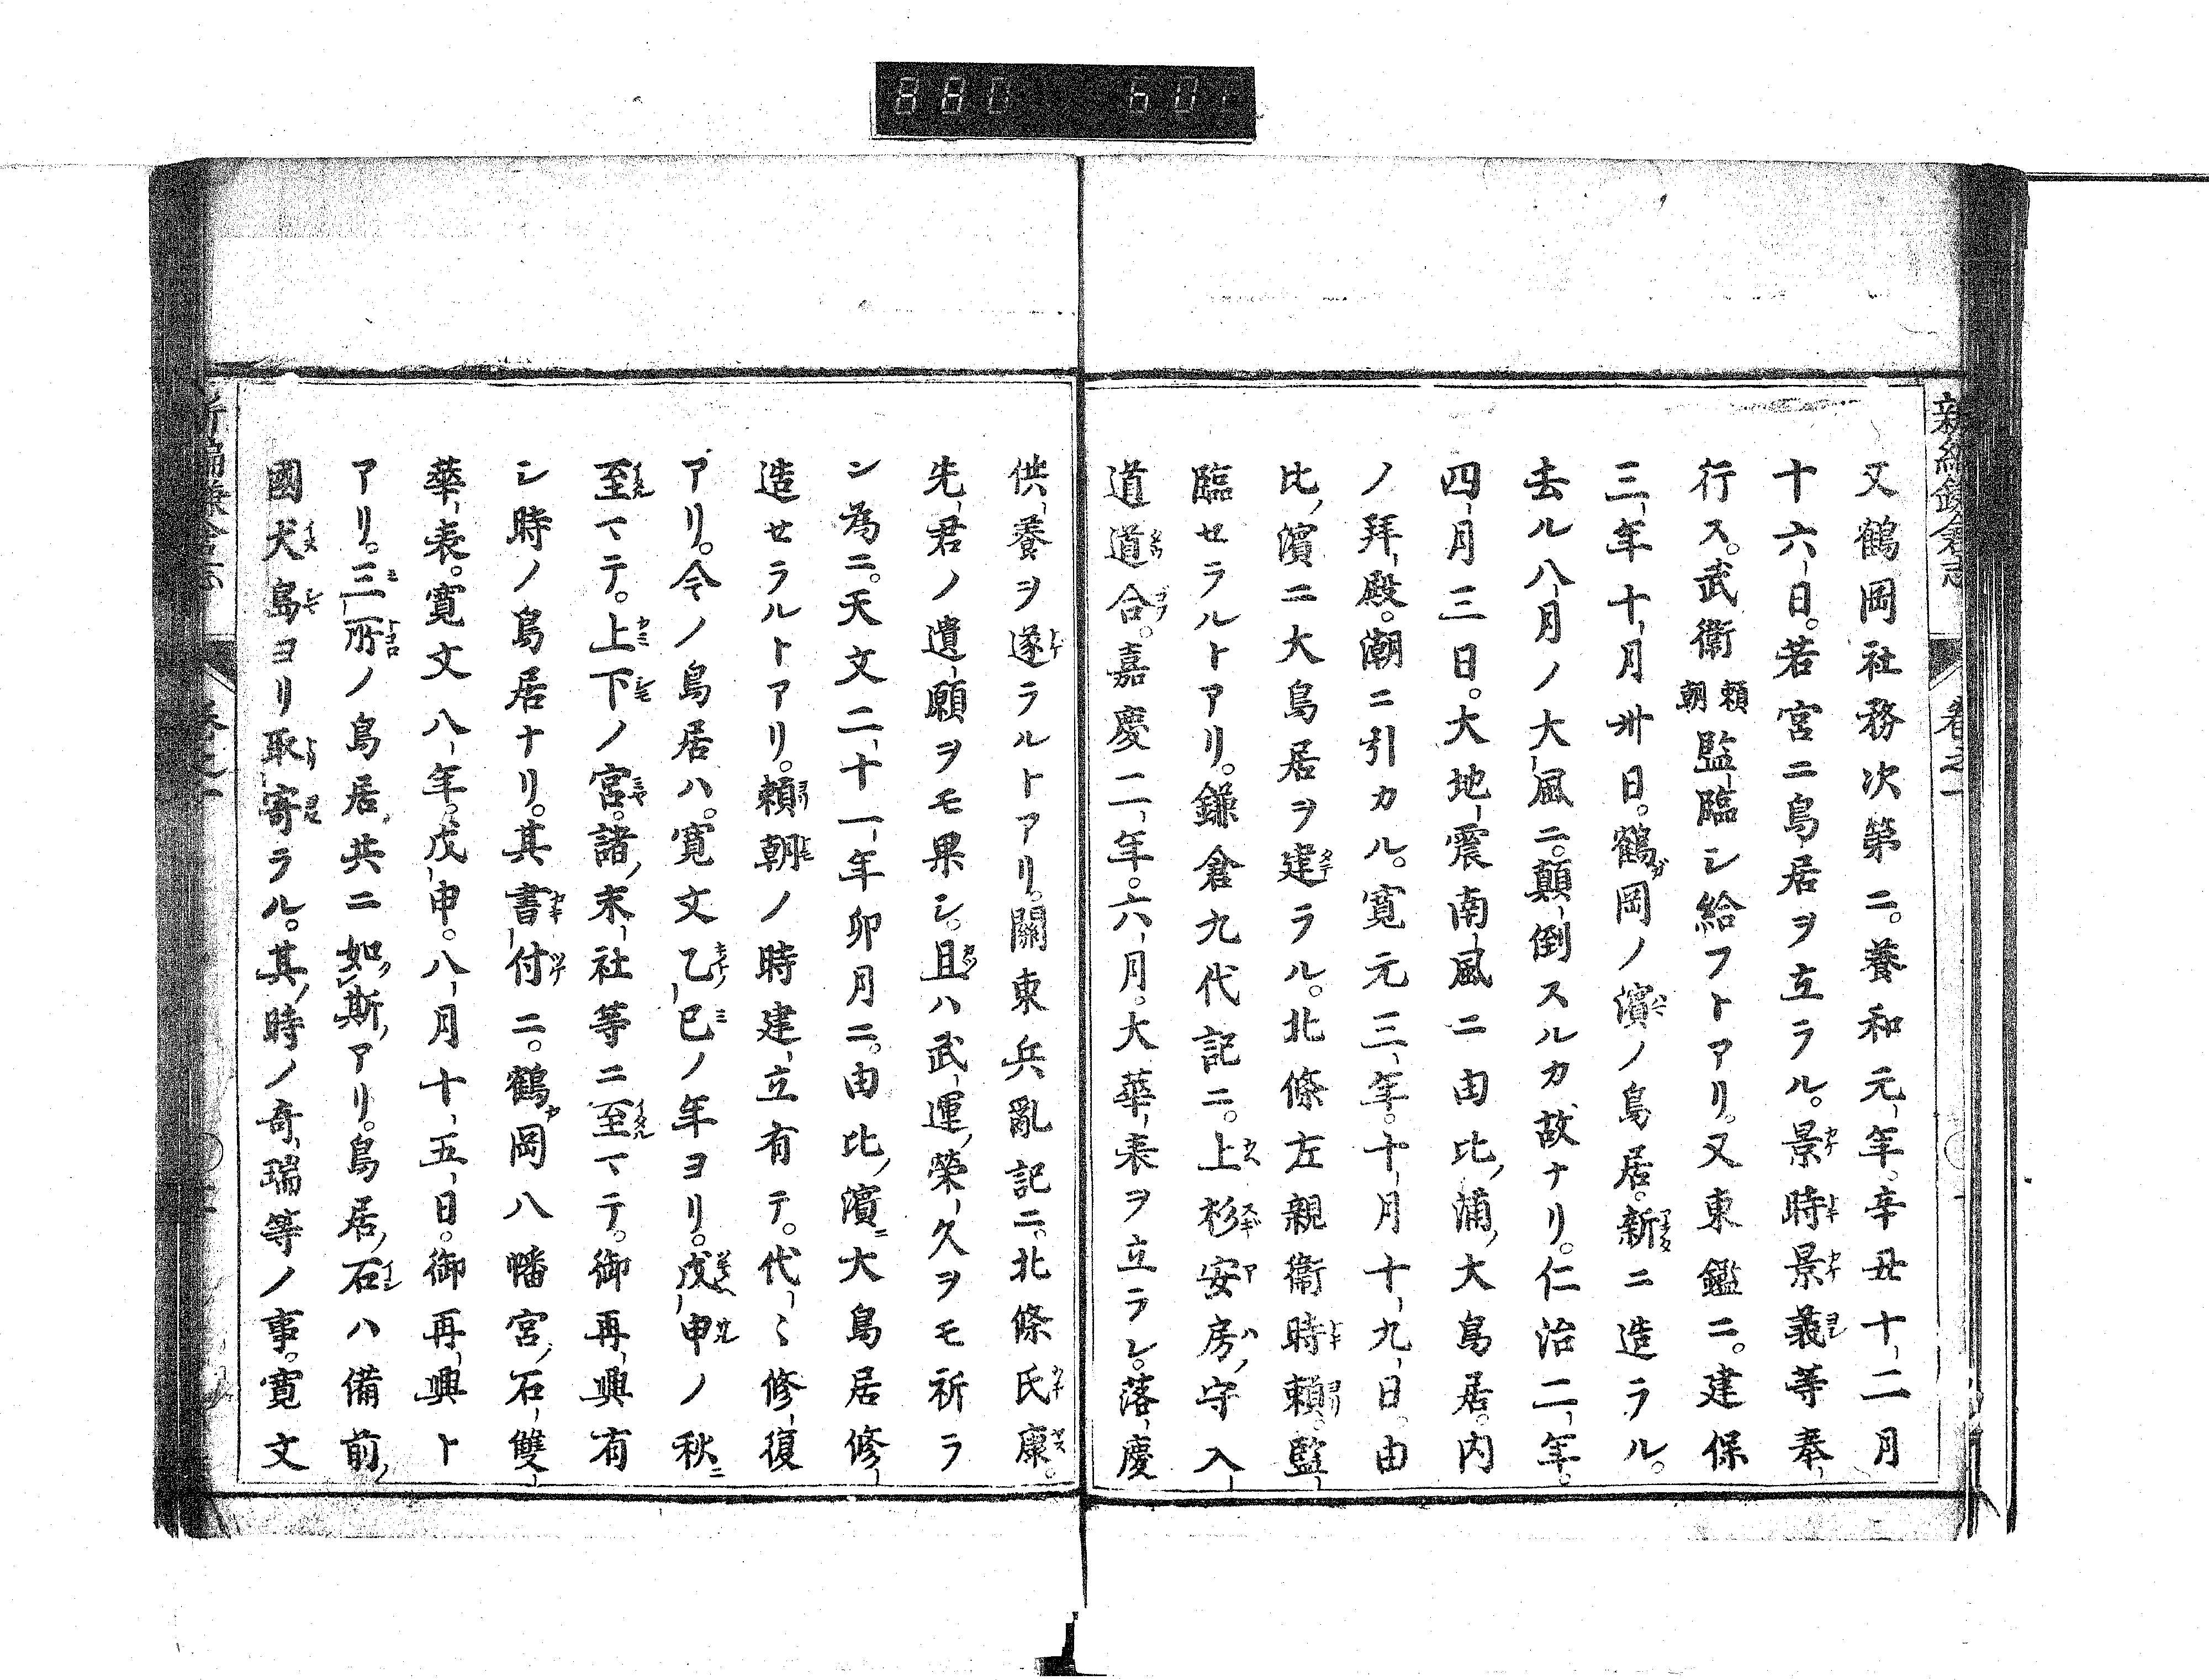 新編鎌倉志 卷之一
又鶴岡社務次第ニ。養和元年。辛丑十二月
十六日。若宮ニ鳥居ヲ立ラル。景時景義等奉
行ス。武衞頼朝監臨シ給フトアリ。又東鑑ニ。建保
三年十月卅日。鶴岡ノ濱ノ鳥居。新ニ造ラル。
去ル八月ノ大風ニ。顛倒スルカ故ナリ。仁治二年。
四月三日。大地震南風ニ由比浦大鳥居。内
ノ拜殿。潮ニ引カル。寛元三年。十月十九日。由
比濱ニ大鳥居ヲ建ラル。北條左親衞時頼。監
臨セラルトアリ。鎌倉九代記ニ。上杉安房守入
道道合。嘉慶二年。六月。大華表ヲ立ラレ。落慶
供養ヲ遂ラルトアリ。關東兵亂記ニ、北條氏康。
先君ノ遺願ヲモ果シ。且ハ武運榮久ヲモ祈ラ
ン為ニ。天文二十一年卯月ニ。由比濱ニ大鳥居修
造セラルトアリ。頼朝ノ時建立有テ。代〻修復
アリ。今ノ鳥居ハ。寛文乙巳ノ年ヨリ。戊申ノ秋ニ
至マテ。上下ノ宮。諸末社等ニ至マテ。御再興有
シ時ノ鳥居ナリ。其書付ニ。鶴岡八幡宮石雙
華表。寛文八年。戊申。八月十五日。御再興ト
アリ。三所ノ鳥居。共ニ如斯アリ。鳥居石ハ備前
國犬島ヨリ取寄ラル。其時ノ奇瑞等ノ事。寛文